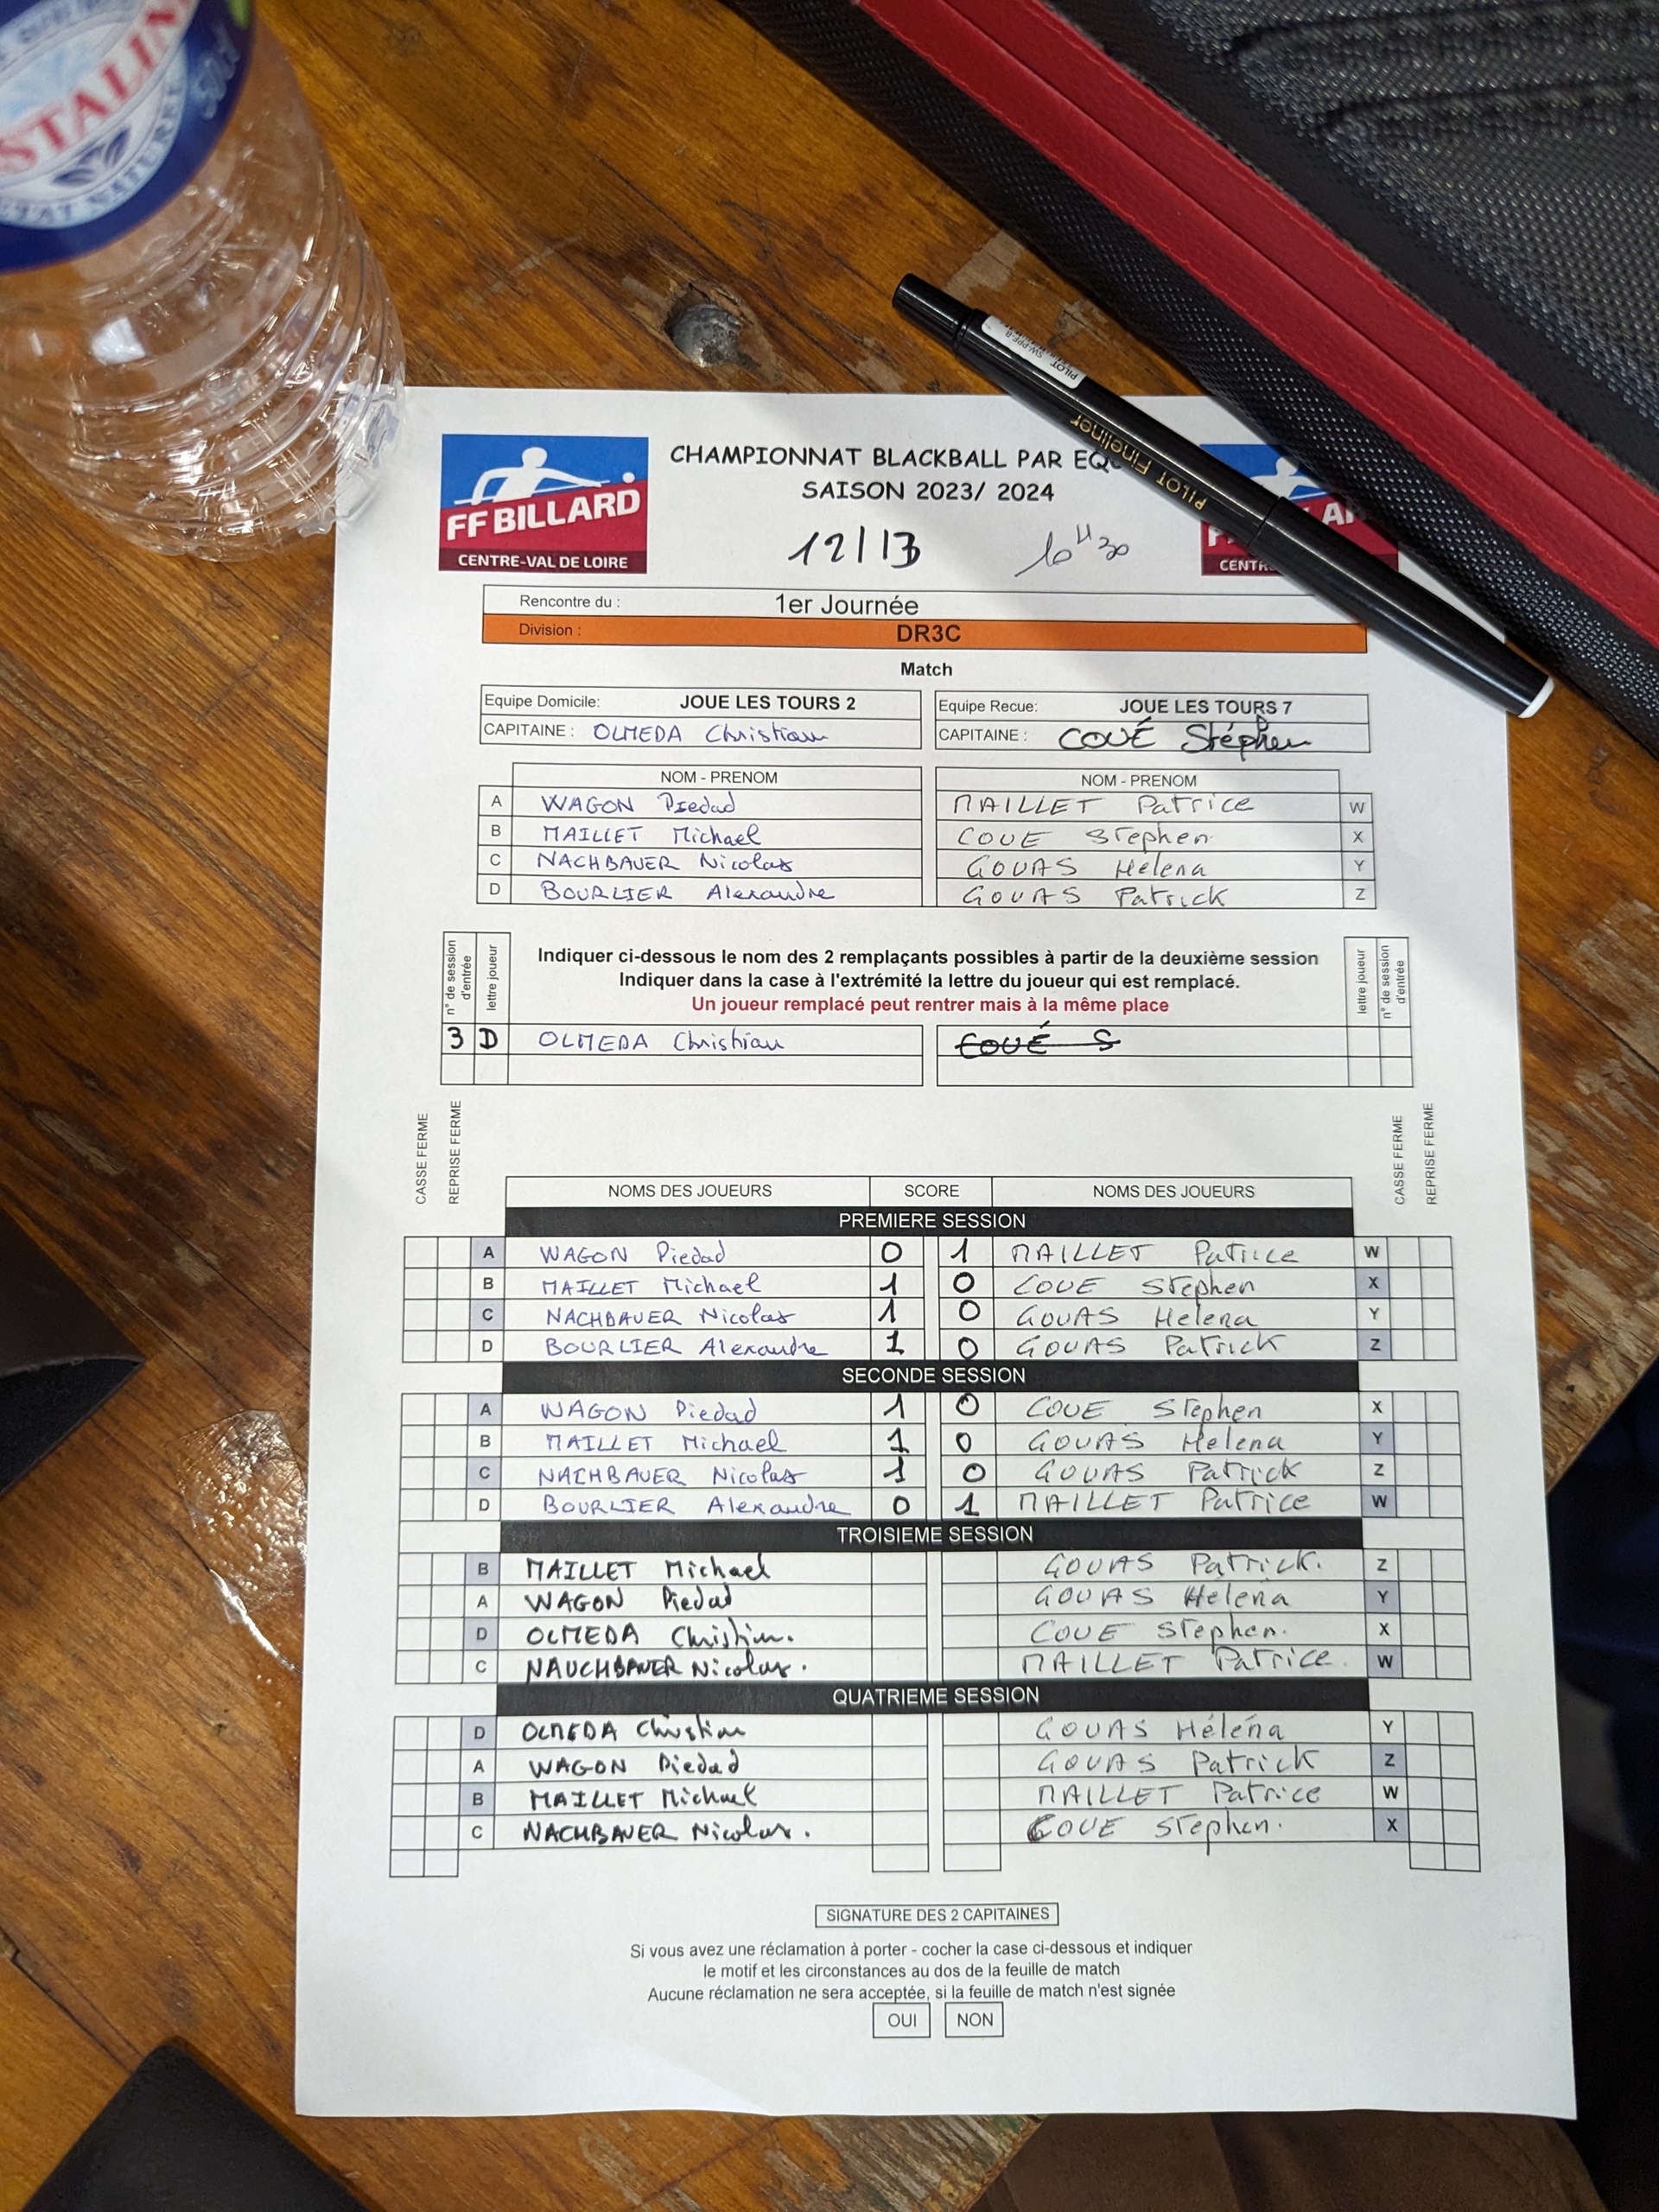 STALIN
PILOT
SW-PPF-B
PILOT Fineliner
FF BILLARD
CENTRE-VAL DE LOIRE
CHAMPIONNAT BLACKBALL PAR
SAISON 2023/ 2024
12/13 10H30
Rencontre du : 1er Journée
Division : DR3C
Match
Equipe Domicile: JOUE LES TOURS 2 Equipe Recue: JOUE LES TOURS 7
CAPITAINE : OLMEDA Christian CAPITAINE : COUÉ Stéphen
NOM - PRENOM NOM - PRENOM
A WAGON Piedad MAILLET Patrice W
B MAILLET Michael COUE Stephen X
C NACHBAUER Nicolas GOUAS Helena Y
D BOURLIER Alexandre GOUAS Patrick Z
n° de session d'entrée
lettre joueur
Indiquer ci-dessous le nom des 2 remplaçants possibles à partir de la deuxième session
Indiquer dans la case à l'extrémité la lettre du joueur qui est remplacé.
Un joueur remplacé peut rentrer mais à la même place
lettre joueur
n° de session d'entrée
3 D OLMEDA Christian COUÉ S
CASSE FERME
REPRISE FERME
CASSE FERME
REPRISE FERME
NOMS DES JOUEURS SCORE NOMS DES JOUEURS
PREMIERE SESSION
A WAGON Piedad 0 1 MAILLET Patrice W
B MAILLET Michael 1 0 COUE Stephen X
C NACHBAUER Nicolas 1 0 GOUAS Helena Y
D BOURLIER Alexandre 1 0 GOUAS Patrick Z
SECONDE SESSION
A WAGON Piedad 1 0 COUE Stephen X
B MAILLET Michael 1 0 GOUAS Helena Y
C NACHBAUER Nicolas 1 0 GOUAS Patrick Z
D BOURLIER Alexandre 0 1 MAILLET Patrice W
TROISIEME SESSION
B MAILLET Michael GOUAS Patrick. Z
A WAGON Piedad GOUAS Helena Y
D OLMEDA Christian. COUE Stephen. X
C NAUCHBAUER Nicolas. MAILLET Patrice. W
QUATRIEME SESSION
D OLMEDA Christian GOUAS Héléna Y
A WAGON Piedad GOUAS Patrick Z
B MAILLET Michael MAILLET Patrice W
C NACHBAUER Nicolas. COUE Stephen. X
SIGNATURE DES 2 CAPITAINES
Si vous avez une réclamation à porter - cocher la case ci-dessous et indiquer
le motif et les circonstances au dos de la feuille de match
Aucune réclamation ne sera acceptée, si la feuille de match n'est signée
OUI NON